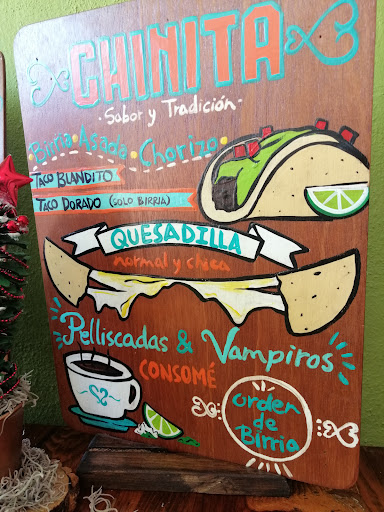 CHINITA
· Sabor y Tradición ·
Birria · Asada · Chorizo ·
TACO BLANDITO
TACO DORADO (SOLO BIRRIA)
QUESADILLA
normal y chica
Pelliscadas & Vampiros
CONSOMÉ
Orden
de
Birria